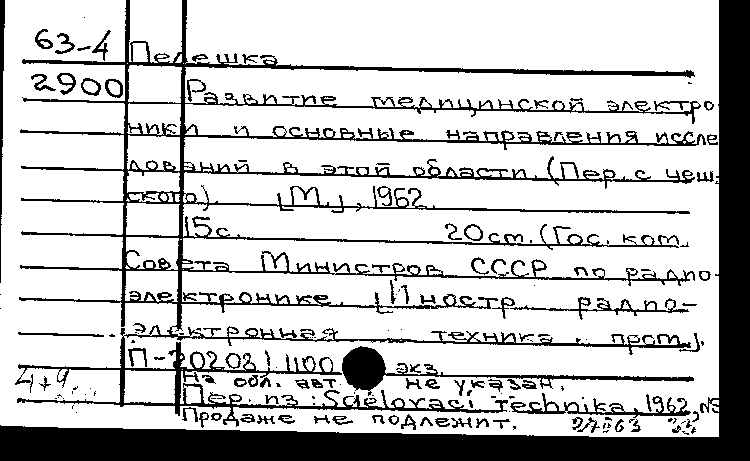 63-4 Пелешка
2900 Развитие медицинской электро
ники и основные направления иссле
дований в этой области. (Пер. с чеш-
ского). [М.], 1962.
15 с. 20 см. (Гос. ком.
Совета Министров СССР по радио-
электронике. [Иностр. радио-
электронная техника. прот.].
П-20208) 1100 экз.
4+9 На обл. авт. не указан.
Пер. из: Sdělovací Technika, 1962, №5
Продаже не подлежит.